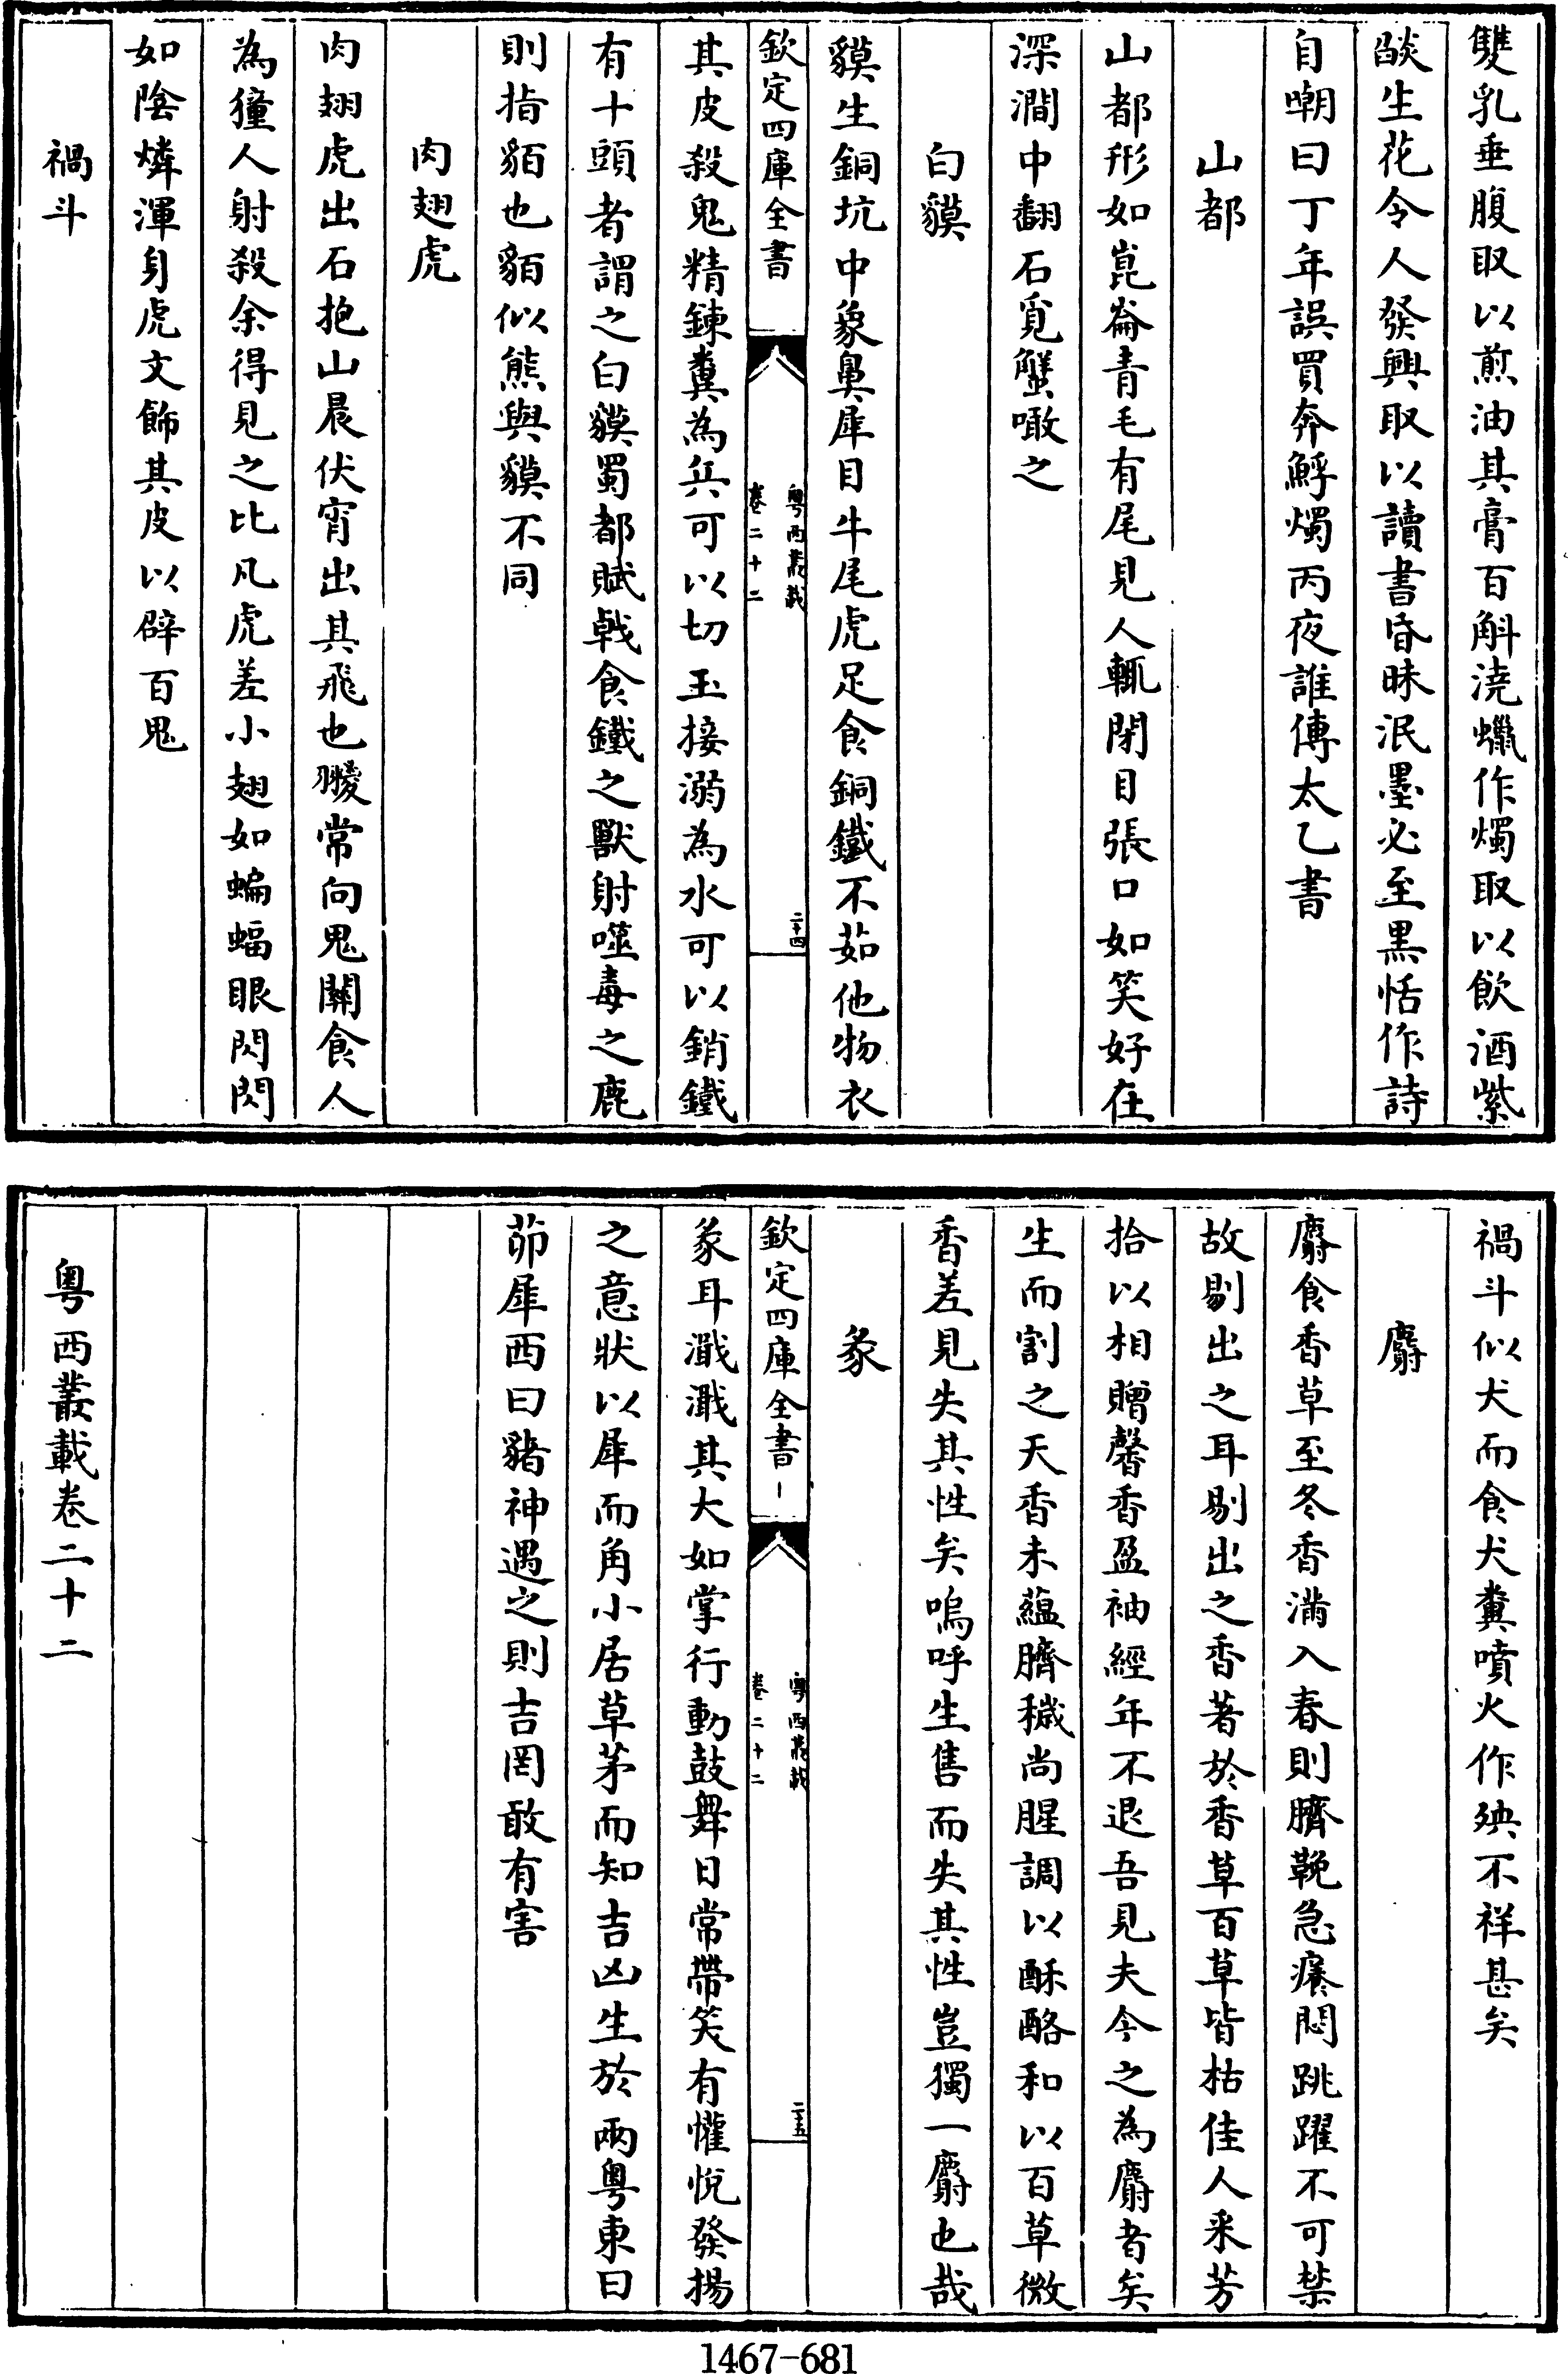 雙乳垂腹取以煎油其膏百斛澆蠟作燭取以飲酒紫
燄生花令人發興取以讀書昏昧泯墨必至黒恬作詩
自嘲曰丁年誤買奔䱐燭丙夜誰傳太乙書
山都
山都形如崑崙青毛有尾見人輒閉目張口如笑好在
深澗中翻石覓蟹噉之
白貘
貘生銅坑中象鼻犀目牛尾虎足食銅鐵不茹他物衣
欽定四庫全書
粤西叢載
卷二十二
二十四
其皮殺鬼精鍊糞為兵可以切玉接溺為水可以銷鐵
有十頭者謂之白貘蜀都賦戟食鐵之獸射噬毒之鹿
則指貊也貊似熊與貘不同
肉翅虎
肉翅虎出石抱山晨伏宵出其飛也翾常向鬼關食人
為獞人射殺余得見之比凡虎差小翅如蝙蝠眼閃閃
如陰燐渾身虎文飾其皮以辟百鬼
禍斗
禍斗似犬而食犬糞噴火作殃不祥甚矣
麝
麝食香草至冬香滿入春則臍鞔急癢悶跳躍不可禁
故剔出之耳剔出之香著於香草百草皆枯佳人采芳
拾以相贈馨香盈袖經年不退吾見夫今之為麝者矣
生而割之天香未蘊臍穢尚腥調以酥酪和以百草微
香差見失其性矣嗚呼生售而失其性豈獨一麝也哉
象
欽定四庫全書
粤西叢載
卷二十二
二十五
象耳濈濈其大如掌行動鼓舞日常帶笑有懽悅發揚
之意狀以犀而角小居草茅而知吉凶生於兩粤東曰
茆犀西曰豬神遇之則吉罔敢有害
粤西叢載卷二十二
1467-681